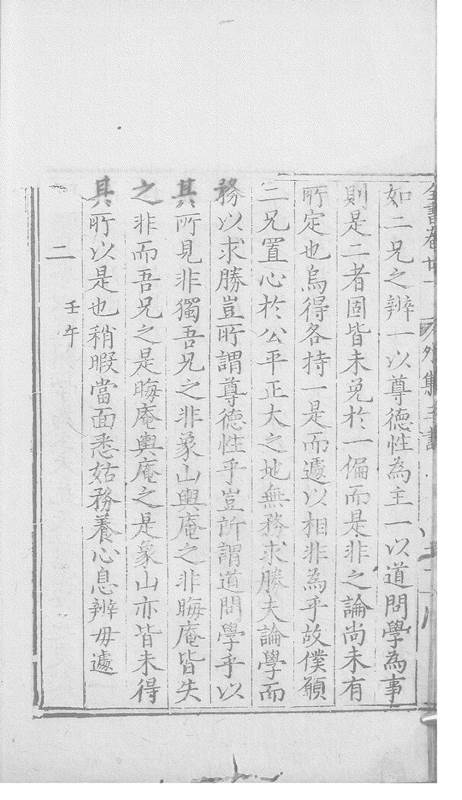 全書卷廿一 外集三 書
如二兄之辨一以尊德性為主一以道問學為事
則是二者固皆未免於一偏而是非之論尚未有
所定也烏得各持一是而遽以相非為乎故僕願
二兄置心於公平正大之地無務求勝夫論學而
務以求勝豈所謂尊德性乎豈所謂道問學乎以
其所見非獨吾兄之非象山輿庵之非晦庵皆失
之非而吾兄之是晦庵輿庵之是象山亦皆未得
其所以是也稍暇當面悉姑務養心息辨毋遽
二 壬午